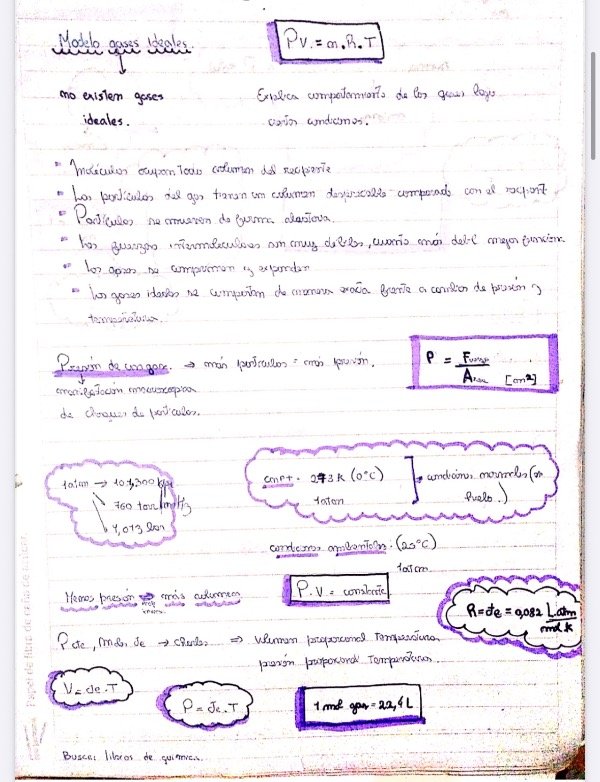 Modelo gases Ideales.
P.V. = n.R.T
no existen gases
ideales.
Explica comportamiento de los gases bajo
ciertas condiciones.
- Moléculas ocupan todo volumen del recipiente
- Las partículas del gas tienen un volumen despreciable comparado con el recipiente
- Partículas se mueven de forma elástica.
- Las fuerzas intermoleculares son muy débiles, cuanto más débil mejor función
- Los gases se comprimen y expanden
- Los gases ideales se comportan de manera exacta frente a cambios de presión y
temperatura.
Presión de un gas. → más partículas = más presión.
manifestación macroscópica
de choques de partículas.
P = Fuerza / Area [cm²]
1 atm → 101,300
760 torr/mmHg
1,013 bar
CNPT. 273 K (0°C)
1 atm
condiciones normales
hielo.)
condiciones ambientales. (25°C)
1 atm.
Menos presión → más volumen
P.V. = constante
R = cte = 0,082 L atm / mol K
P cte, n cte → Charles ⇒ Volumen proporcional Temperatura
presión proporcional Temperatura.
V = cte . T
P = cte . T
1 mol gas = 22,4 L
Buscar libros de química.